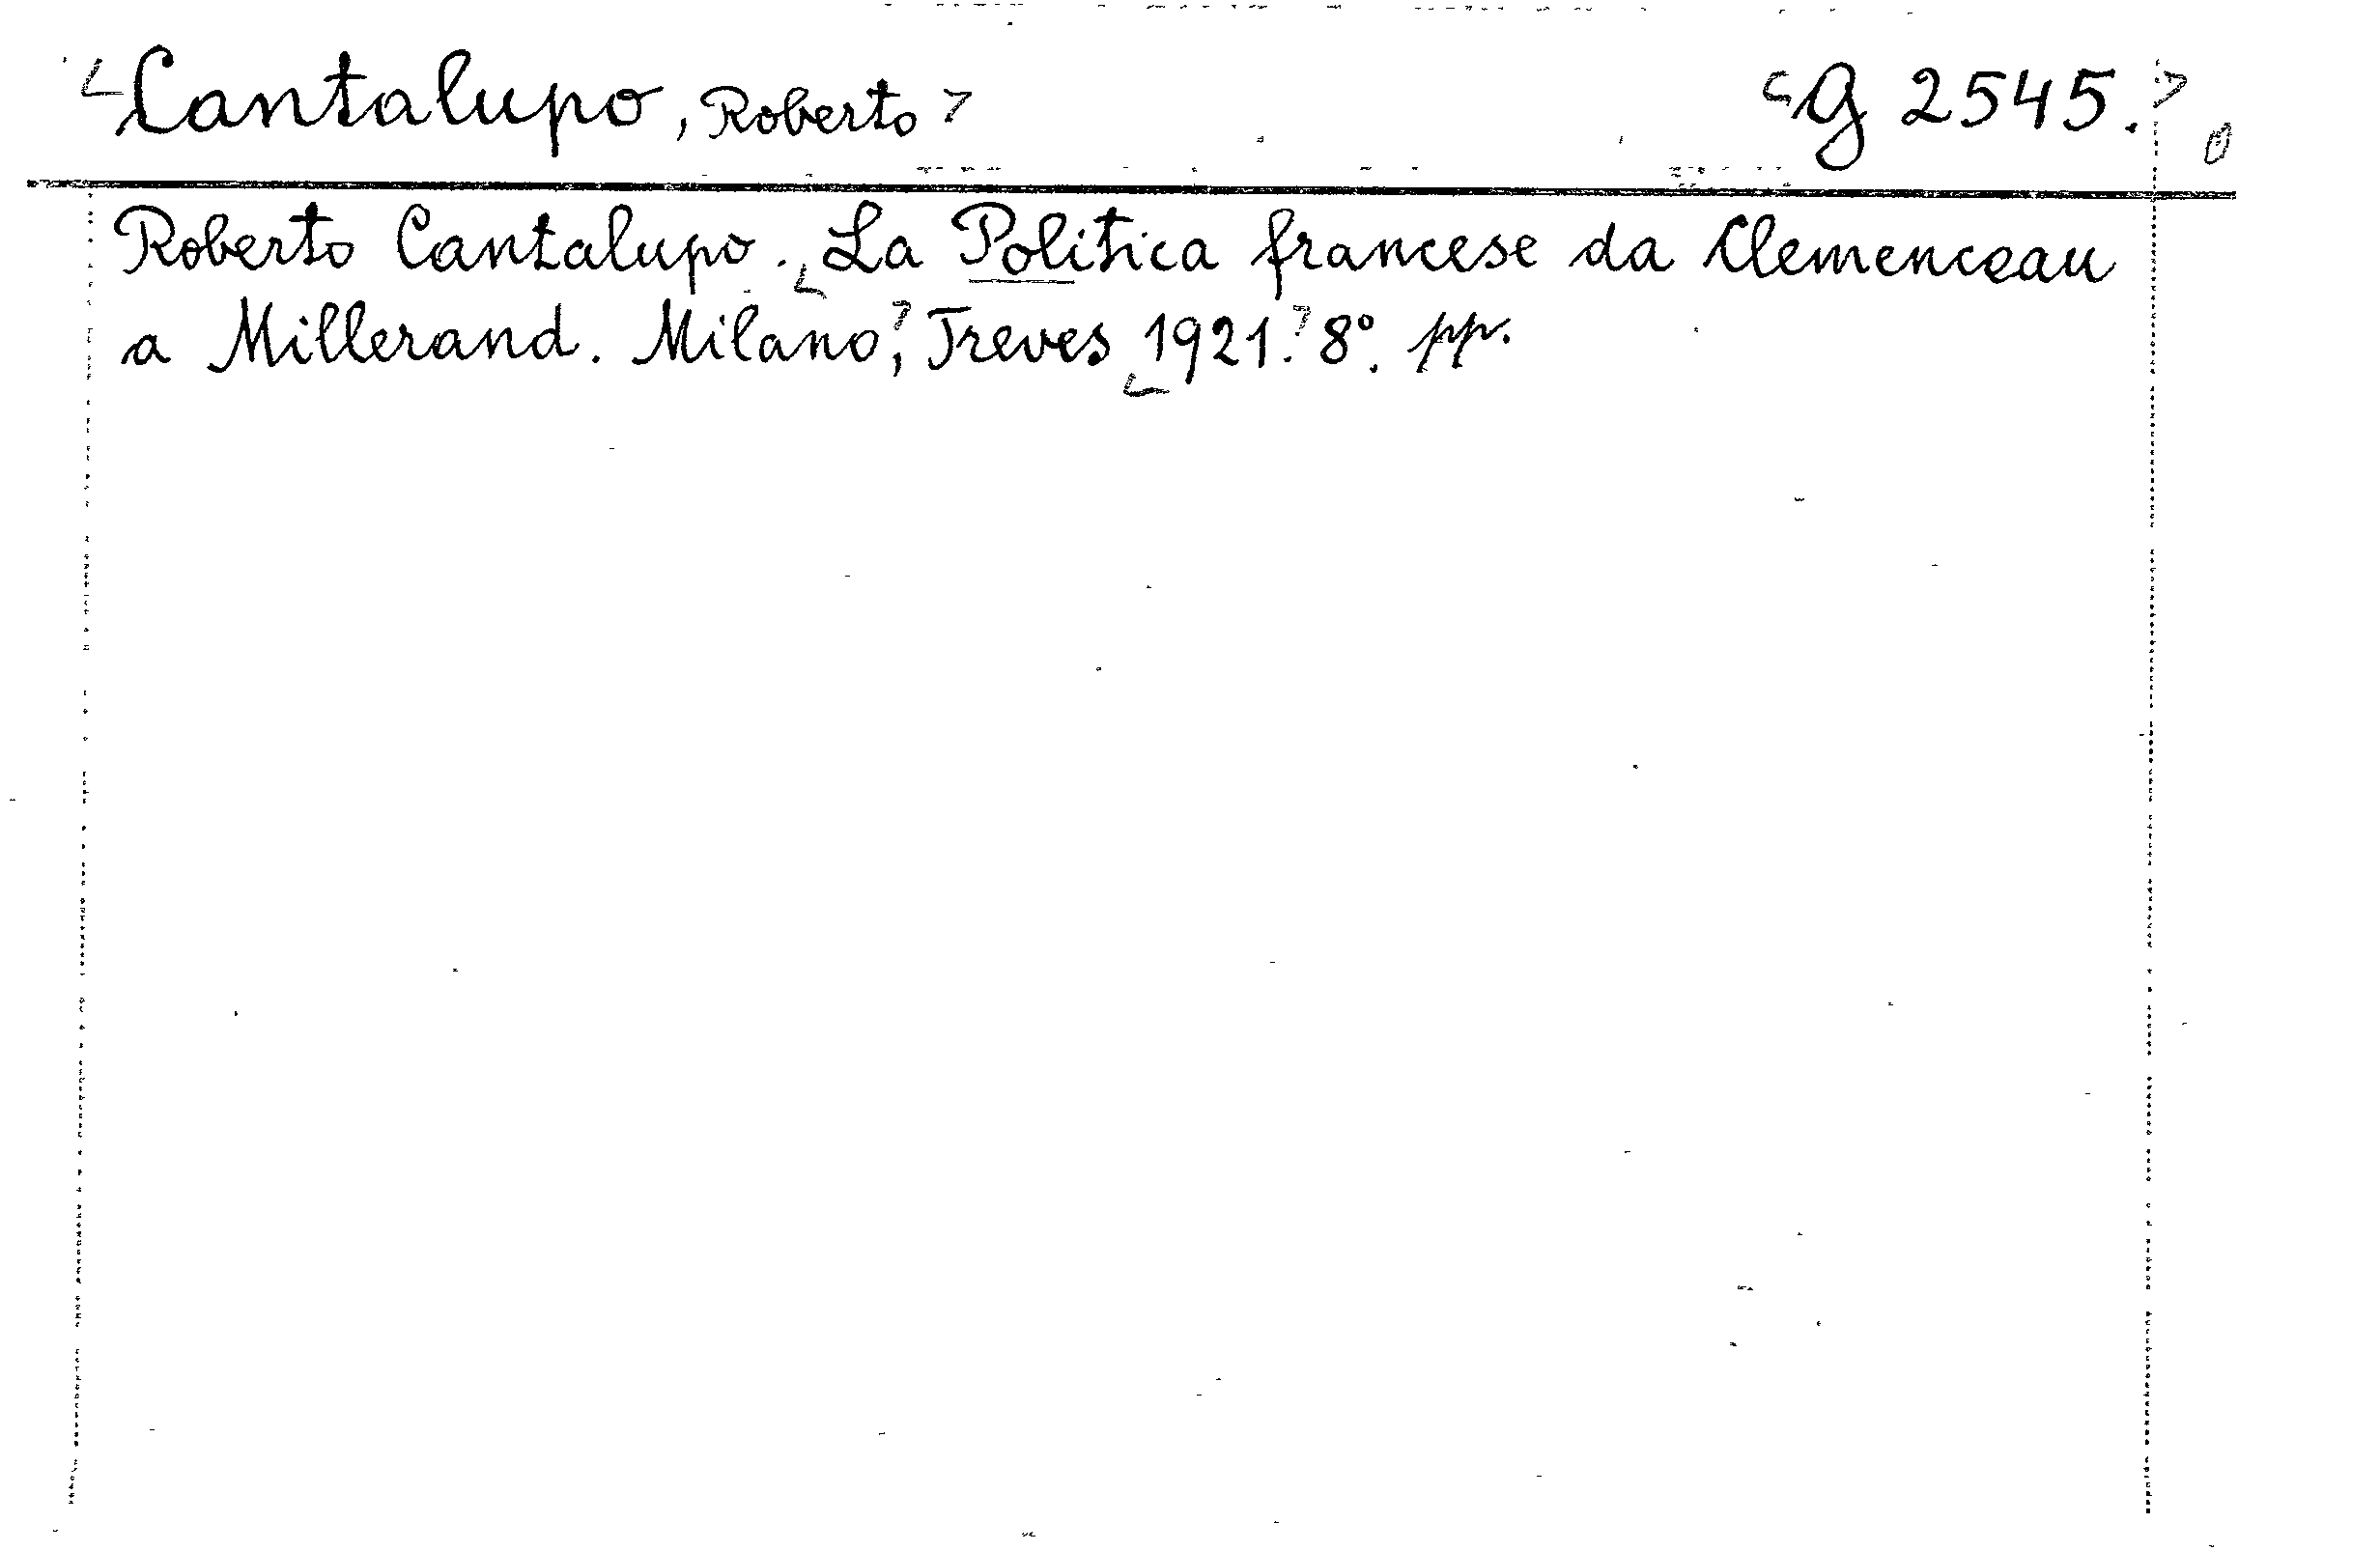 Cantalupo, Roberto G 2545.
Roberto Cantalupo. La Politica francese da Clemenceau
a Millerand. Milano, Treves 1921. 8°. pp.